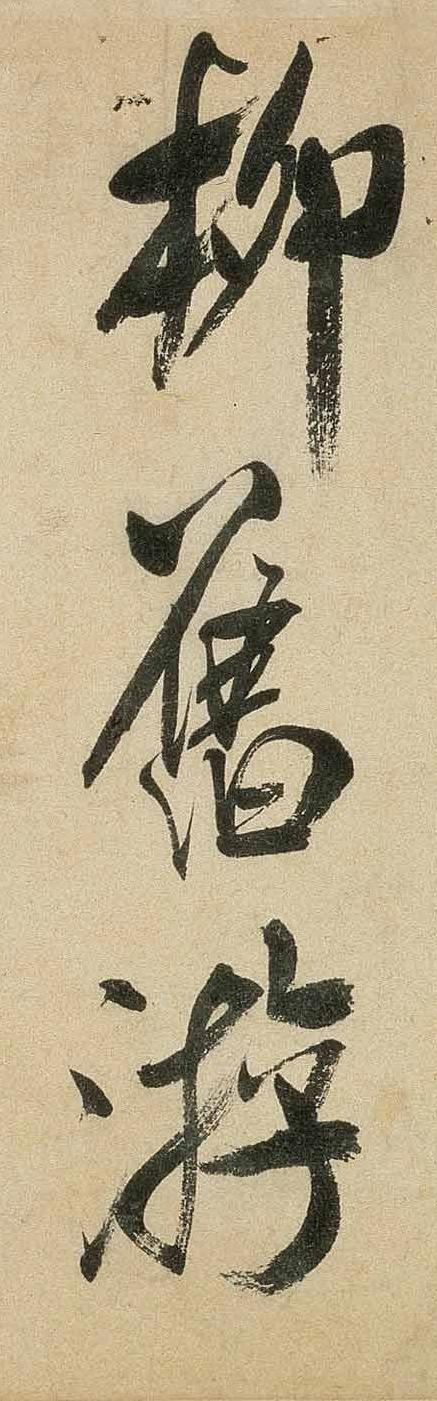 柳舊游